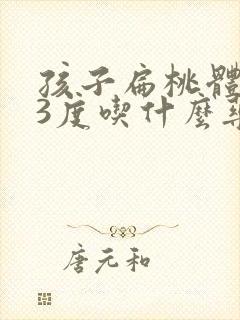 孩子扁桃體
3度喫什麼
唐元和